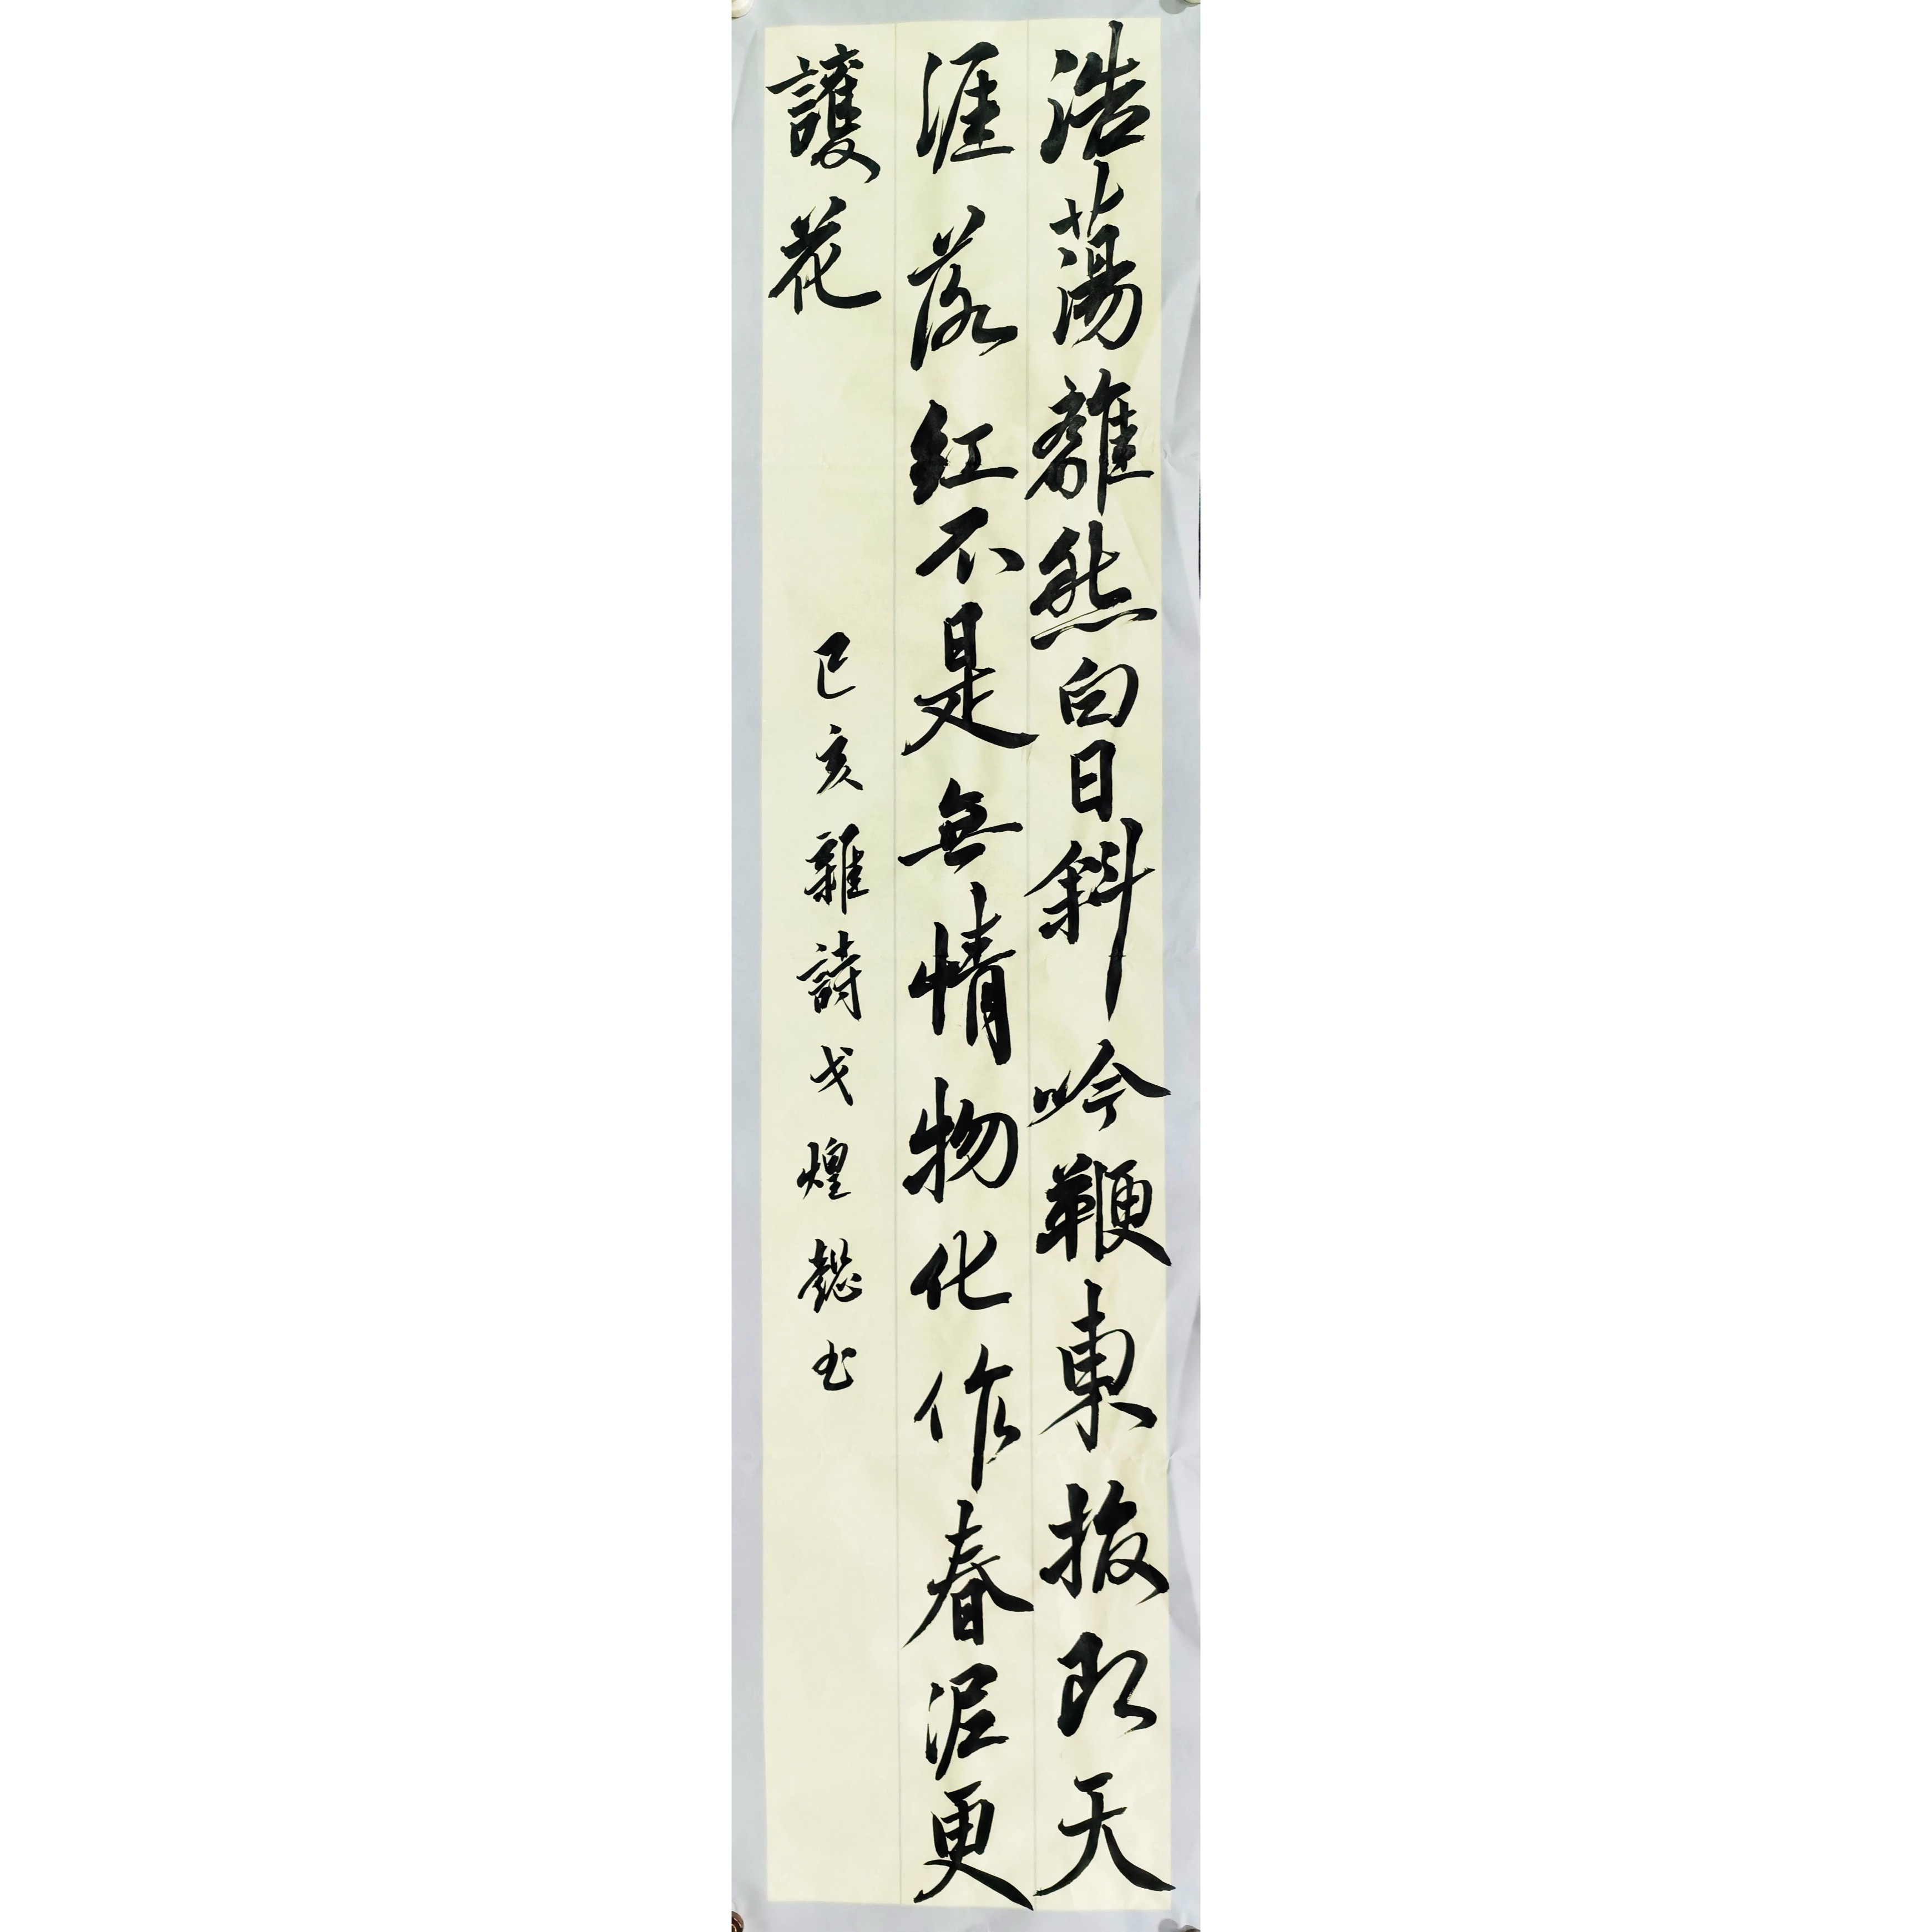 浩蕩離愁白日斜吟鞭東指即天
涯落紅不是無情物化作春泥更
護花
己亥雜詩戈煌懿书